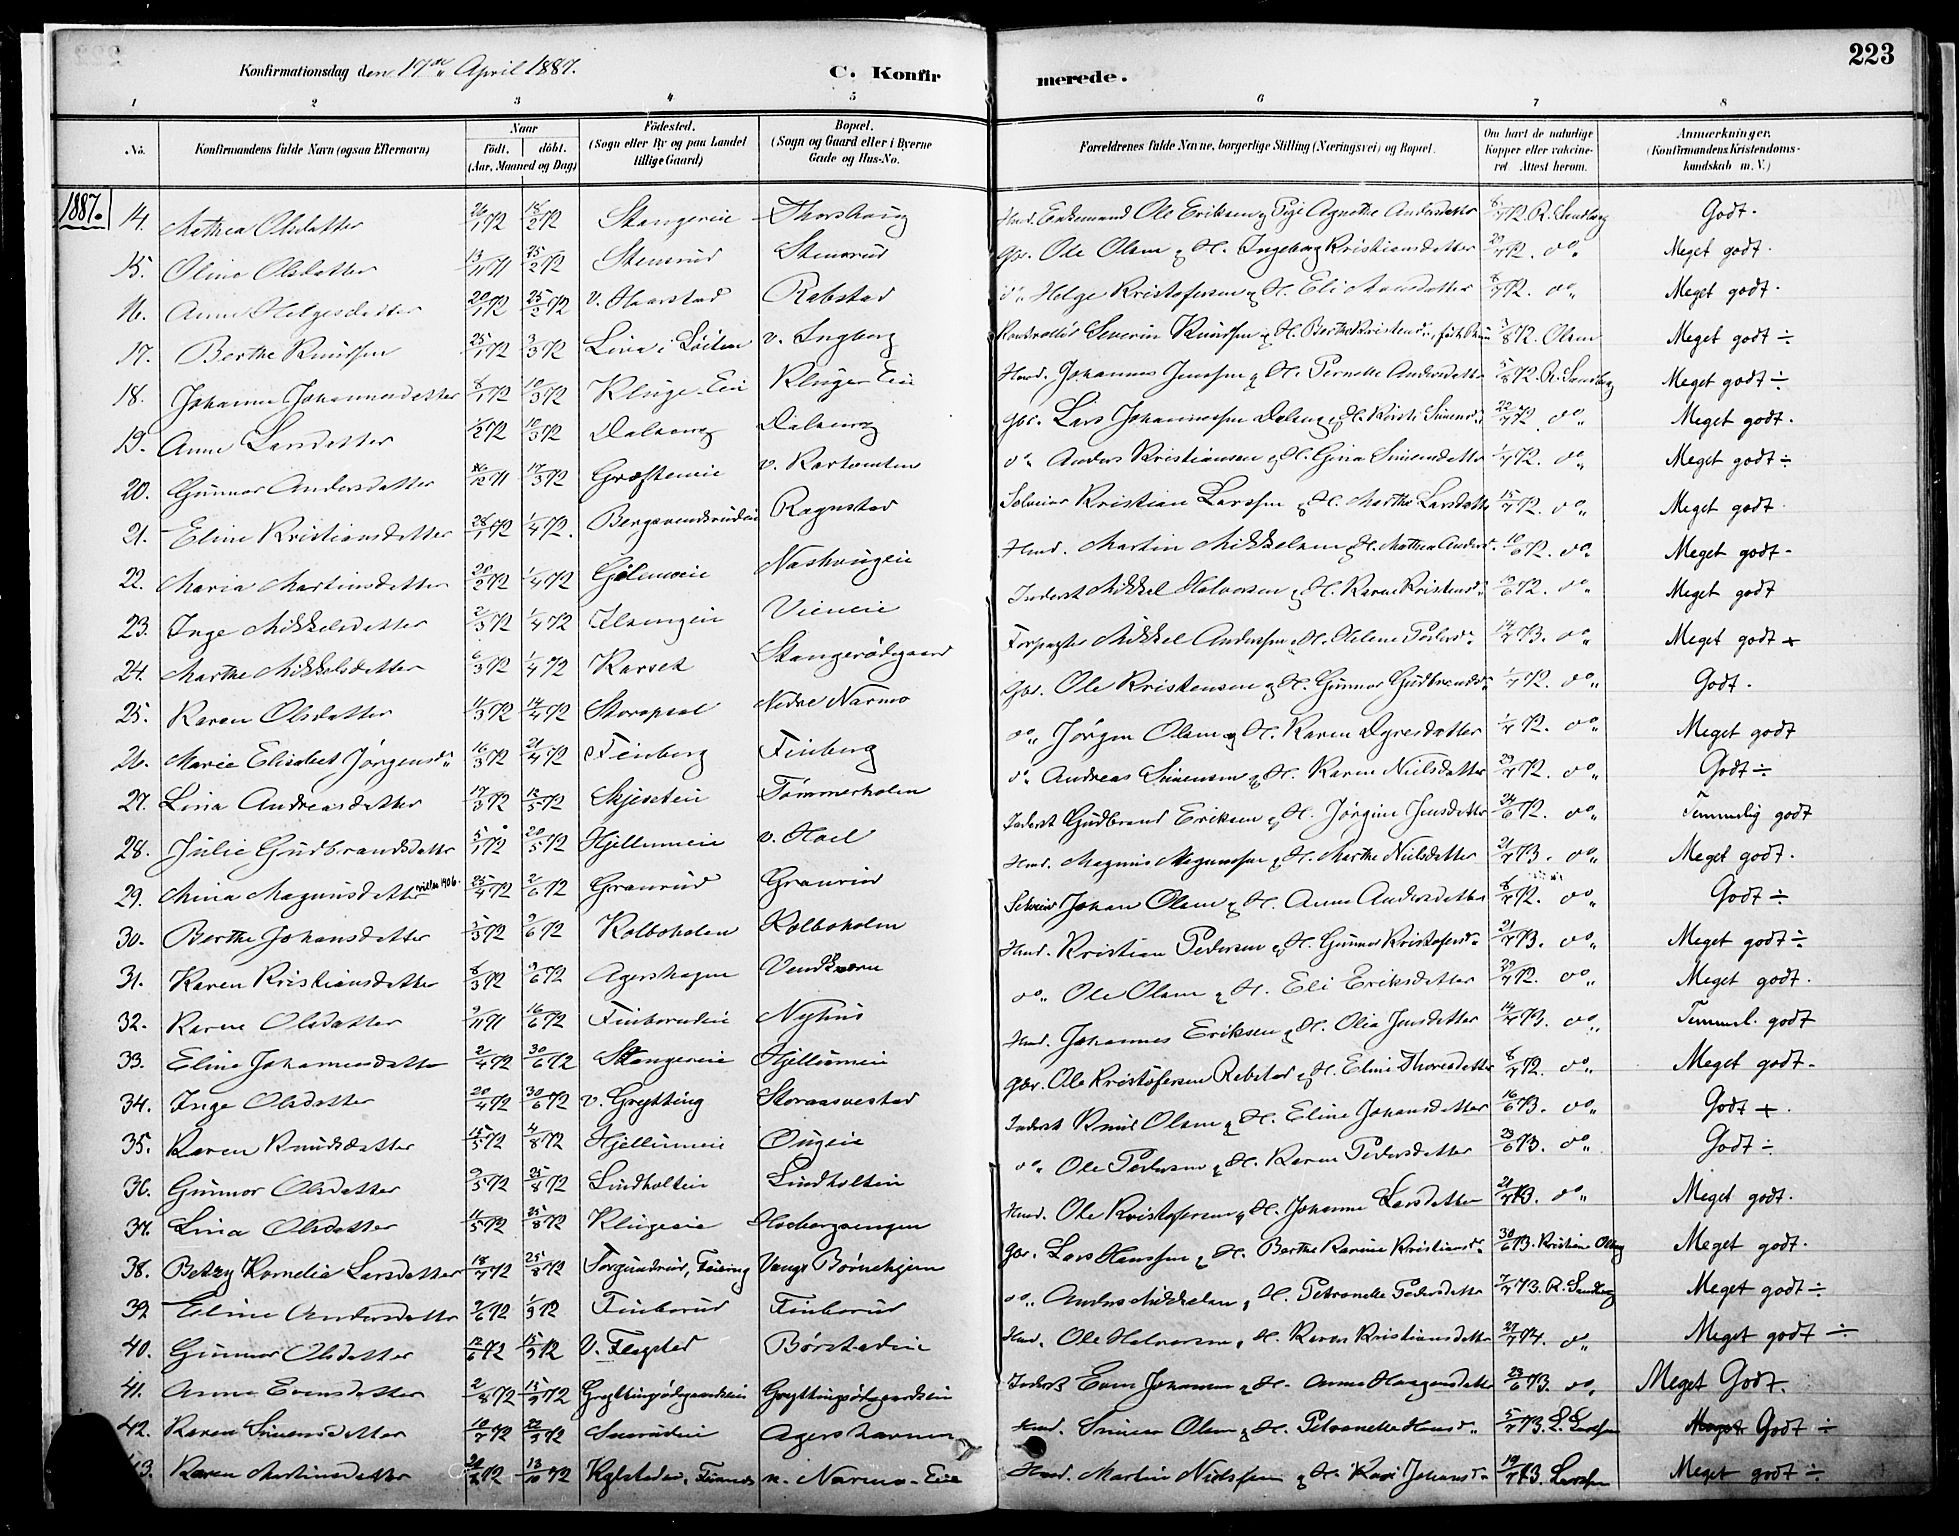 223
Konfirmationsdag den 17de April 1887.
C. Konfirmerede.
1 2 3 4 5 6 7 8
No.
Konfirmandens fulde Navn (ogsaa Efternavn)
Naar
Födt. döbt.
(Aar, Maaned og Dag)
Födested.
(Sogn eller By og paa Landet tillige Gaard)
Bopæl.
(Sogn og Gaard eller i Byerne Gade og Hus-No.
Forældrenes fulde Navne, borgerlige Stilling (Næringsvei) og Bopæl.
Om havt de naturlige Kopper eller vakcineret. Attest herom.
Anmærkninger.
(Konfirmandens Kristendomskundskab m. V.)
1887.
14. Mathea Olsdatter 26/1 72 18/2 72 Stangereie Thorshaug Husmd. Enkemand Ole Eriksen & Pige Agnethe Andersdatter 6/7 72. R. Sandberg Godt.
15. Oline Olsdatter 13/11 71 25/2 72 Stensrud Stensrud Gbr. Ole Olsen & H. Ingeborg Kristiansdatter 29/7 72. do Meget godt.
16. Anne Helgesdatter 20/1 72 25/3 72 v. Haarstad Rabstad do Helge Kristofersen & H. Eli Hansdatter 8/7 72. do Meget godt.
17. Berthe Knudsen 25/1 72 3/3 72 Liva i Löiten v. Ingberg Severin Knudsen & H. Berthe 3/8 72. Olsen Meget godt ÷
18. Johanne Johannesdatter 8/1 72 10/3 72 Kluge Eie Kluge Eie Husmd. Johannes Jensen & H. Pernelle Andersdatter 5/8 72. R. Sandberg Meget godt ÷
19. Anne Larsdatter 1/2 72 10/3 72 Dalseng Dalseng Gbr. Lars Johannessen Dalseng & H. Kirsti Simensd. 22/7 72. do Meget godt.
20. Gunnor Andersdatter 26/12 71 17/3 72 Græfteneie v. Karhomten do Anders Kristiansen & H. Gina Simensdatter 1/7 72. do Meget godt ÷
21. Eline Kristiansdatter 28/1 72 1/4 72. Ragnstad Selveier Kristian Larssen & H. Marthe Larsdatter 15/7 72. do Meget godt.
22. Maria Martinsdatter 20/2 72 1/4 72 Gölenseie Nashougeie Husmd. Martin Mikkelsen & H. Mathea Andersd. 10/6 72. do Meget godt.
23. Inge Mikkelsdatter 2/3 72 1/4 72 Ilsengeie Vieneie Inderst Mikkel Halvorsen & H. Karen Kristensd. 10/6 72. do Meget godt
24. Marthe Mikkelsdatter 6/3 72 1/4 72 Karset Stangerödegaard Forpagter Mikkel Anderssen & H. Helene Pedersd. 14/7 73. do Meget godt +
25. Karen Olsdatter 11/3 72 14/4 72 Storopsal Nedre Narmo Gbr. Ole Kristensen & H. Gunnor Gudbrandsd. 1/7 72. do Godt.
26. Marie Elisabet Jørgensd. 16/3 72 21/4 72 Finberg Finberg do Jørgen Olsen & H. Karen Dyresdatter 1/7 72. do Meget godt
27. Lina Andreasdatter 17/3 72 12/5 72 Skjeseteie Tømmerholen do Andreas Simensen & H. Karen Nielsdatter 29/7 72. do Godt ÷
28. Julie Gudbrandsdatter 5/1 72 20/5 72 Hjellumeie v. Hoel Inderst Gudbrand Eriksen & H. Jørgine Jensdatter 24/6 72. do Temmelig godt
29. Mina Magnusdatter 25/4 72 2/6 72 Granerud Granerud Husmd. Magnus Magnussen & H. Marthe Nielsdatter 21/7 73. do Meget godt.
30. Berthe Johansdatter 5/3 72 9/6 72 Kolboholen Kolboholen Selveier Johan Olsen & H. Anne Andersdatter 8/7 72. do Godt ÷
31. Karen Kristiansdatter 8/3 72 9/6 72 Agershagen Vendkvern Husmd. Kristian Pedersen & H. Gunnor Kristofersd. 21/7 73. do Meget godt ÷
32. Karen Olsdatter 9/11 71 16/6 72 Finborudeie Nyhus do Ole Olsen & H. Eli Eriksdatter 29/7 72. do Meget godt.
33. Eline Johannesdatter 2/4 72 30/6 72 Stangereie Hjellumeie Husmd. Johannes Eriksen & H. Olia Jensdatter 14/7 73. do Temmel. godt
34. Inge Olsdatter 20/4 72 30/6 72 v. Grytting Storaasvestad Gbr. Ole Kristofersen Rabstad & H. Eline Thoresdatter 8/7 72. do Meget godt.
35. Karen Knudsdatter 15/5 72 4/8 72 Hjellumeie Ougeie Inderst Knud Olsen & H. Eline Johansdatter 16/6 73. do Godt +.
36. Gunnor Olsdatter 9/5 72 25/8 72 Lindholteie Lindholteie do Ole Pedersen & H. Karen Pedersdatter 23/6 73. do Godt ÷
37. Lina Olsdatter 11/5 72 25/8 72 Klugeeie Hobergsengen Husmd. Ole Kristofersen & H. Johanne Larsdatter 21/7 73. do Meget godt.
38. Betzy Kornelia Larsdatter 18/7 72 25/8 72 Torgunrud, Feiring Vangs Børnehjem Gbr. Lars Hanssen & H. Berthe Karine Kristiansd. 30/6 73. Kristian Meget godt.
39. Eline Andersdatter 9/6 72 1/9 72 Finborud Finborud do Anders Mikkelsen & H. Petronelle Pedersdatter 7/7 73. R. Sandberg Meget godt ÷
40. Gunnor Olsdatter 12/6 72 15/9 72 v. Flagstad Børstadeie Husmd. Ole Halvorsen & H. Karen Kristiansdatter 27/7 74. do Meget godt ÷
41. Anne Evensdatter 2/8 72 15/9 72 Gryttingødegaardseie Gryttingødegaardseie Inderst Even Johansen & H. Anne Haagensdatter 23/6 73. do Meget Godt.
42. Karen Simensdatter 10/7 72 22/9 72 Agershaven Husmd. Simen Olsen & H. Petronelle Hansd. 5/7 73. L. Larssen Godt ÷
43. Karen Martinsdatter 72 13/10 72 n. Narmo-Eie Husmd. Martin Nielssen & H. Kari Johansd. 19/7 73. Larssen Meget godt ÷